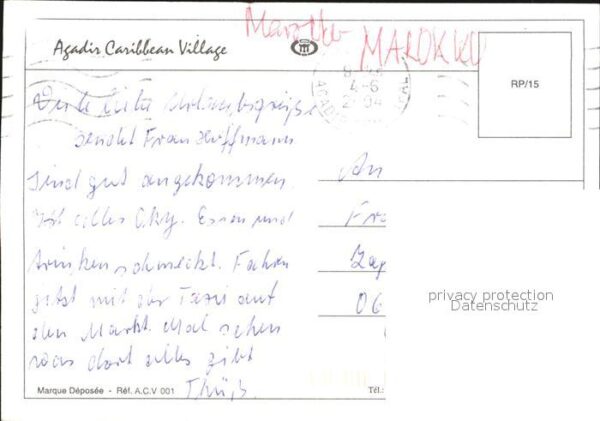 Marokko MAROKKO
Agadir Caribbean Village
RP/15
Viele liebe Urlaubsgrüße
sendet Frau Hoffmann
Sind gut angekommen.
Ist alles Oky. Essen und
trinken schmeckt. Fahren
jetzt mit der Taxi auf
den Markt. Mal sehen
was dort alles gibt
Tschüß.
An
Fra
06
privacy protection
Datenschutz
Marque Déposée - Réf. A.C.V 001
Tél.: